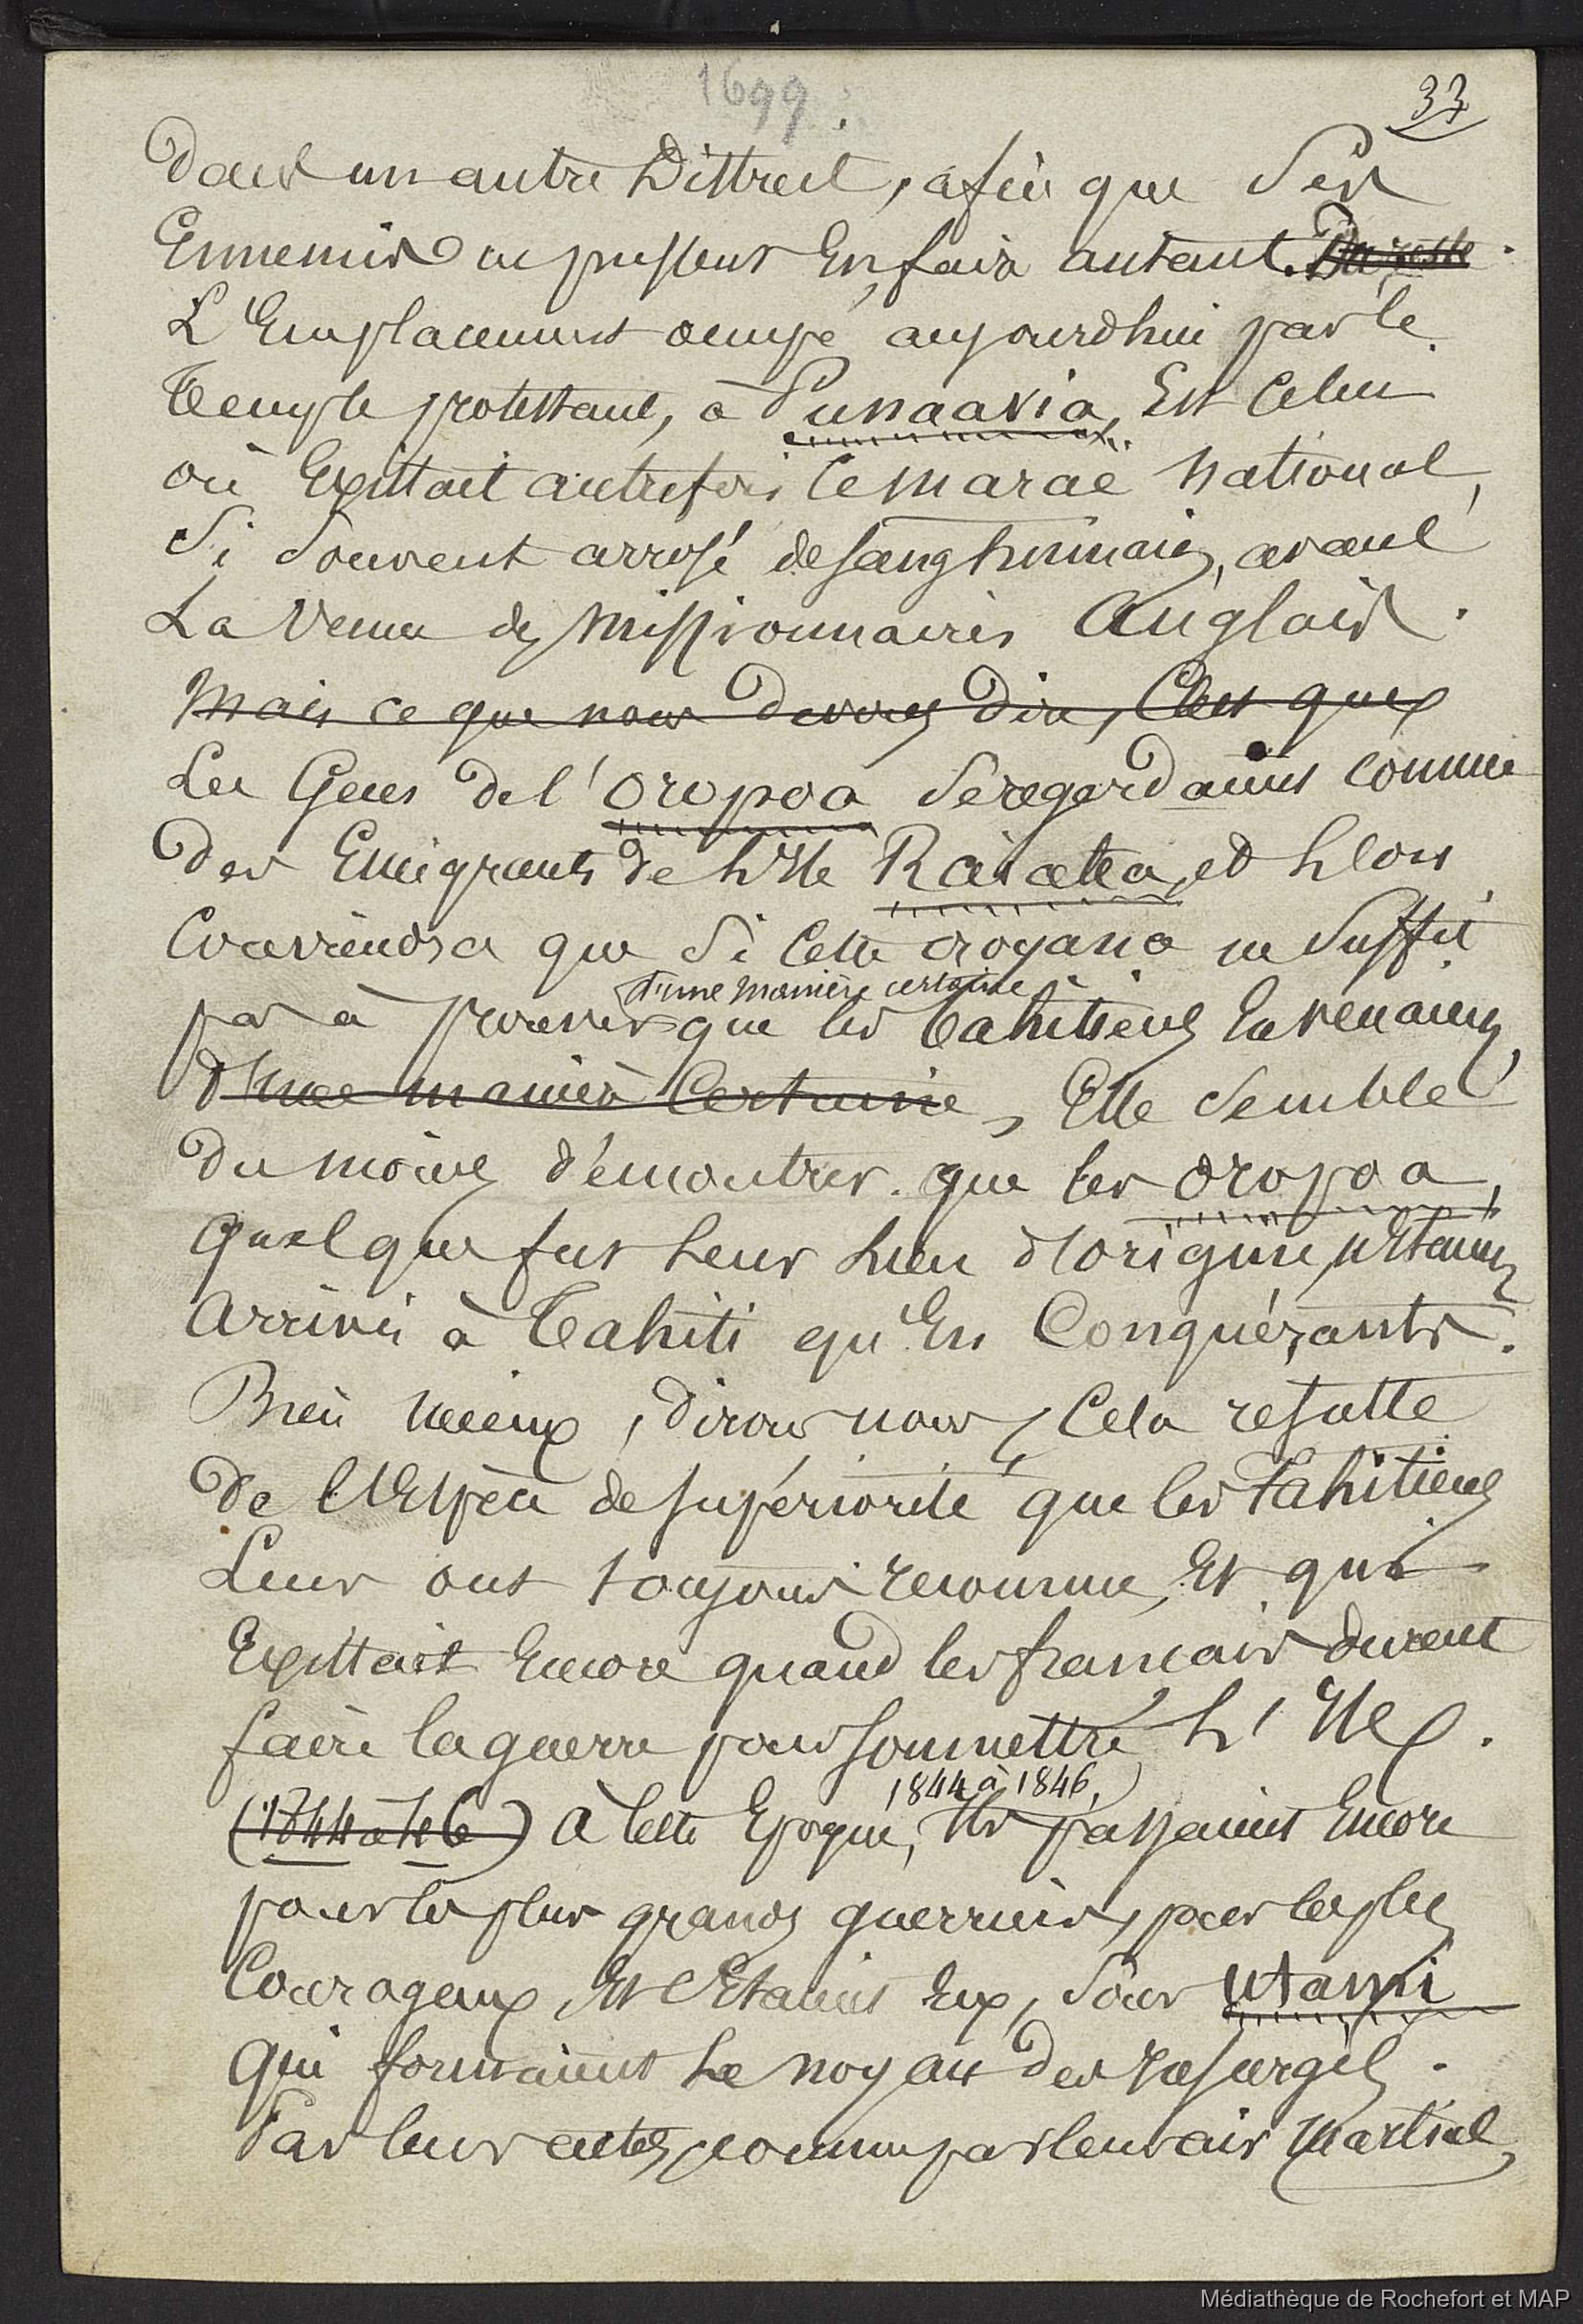 1699.
37
Dans un autre District, afin que Ses
Ennemis ne pussent En faire autant. Du reste
L'Emplacement occupé aujourdhui par le
Temple protestant, à Punaavia, Est Celui
où Existait autrefois le maraë national,
Si Souvent arrosé de sang humain, avant
La Venue des Missionnaires Anglais.
Mais ce que nous devons dire, C'est que
Les Gens de l'oropoa Se regardaient comme
Des Emigrants de L'Ile Raiatea, et L'on
Conviendra que Si Cette croyance ne Suffit
d'une manière certaine
pas à prouver que les Tahitiens En venaient,
d'une manière Certaine, Elle Semble
Du moins démontrer que les oropoa,
Quelque fut Leur Lieu d'origine, n'Etaient
Arrivés à Tahiti qu'En Conquérants.
Bien mieux, dirons nous, Cela resulte
De l'Espèce de supériorité que les Tahitiens
Leur ont toujours reconnue, Et qui
Existait Encore quand les francais durent
faire la guerre pour soumettre L'Ile.
1844 à 1846,
(1844 à 46) À cette Epoque, Ils passaient Encore
pour les plus grands guerriers, pour les plus
Courageux, Et C'Etaient Eux, Sous Utami
Qui formaient Le noyau des Insurgés.
Par leurs actes, comme par leur air martial,
Médiathèque de Rochefort et MAP